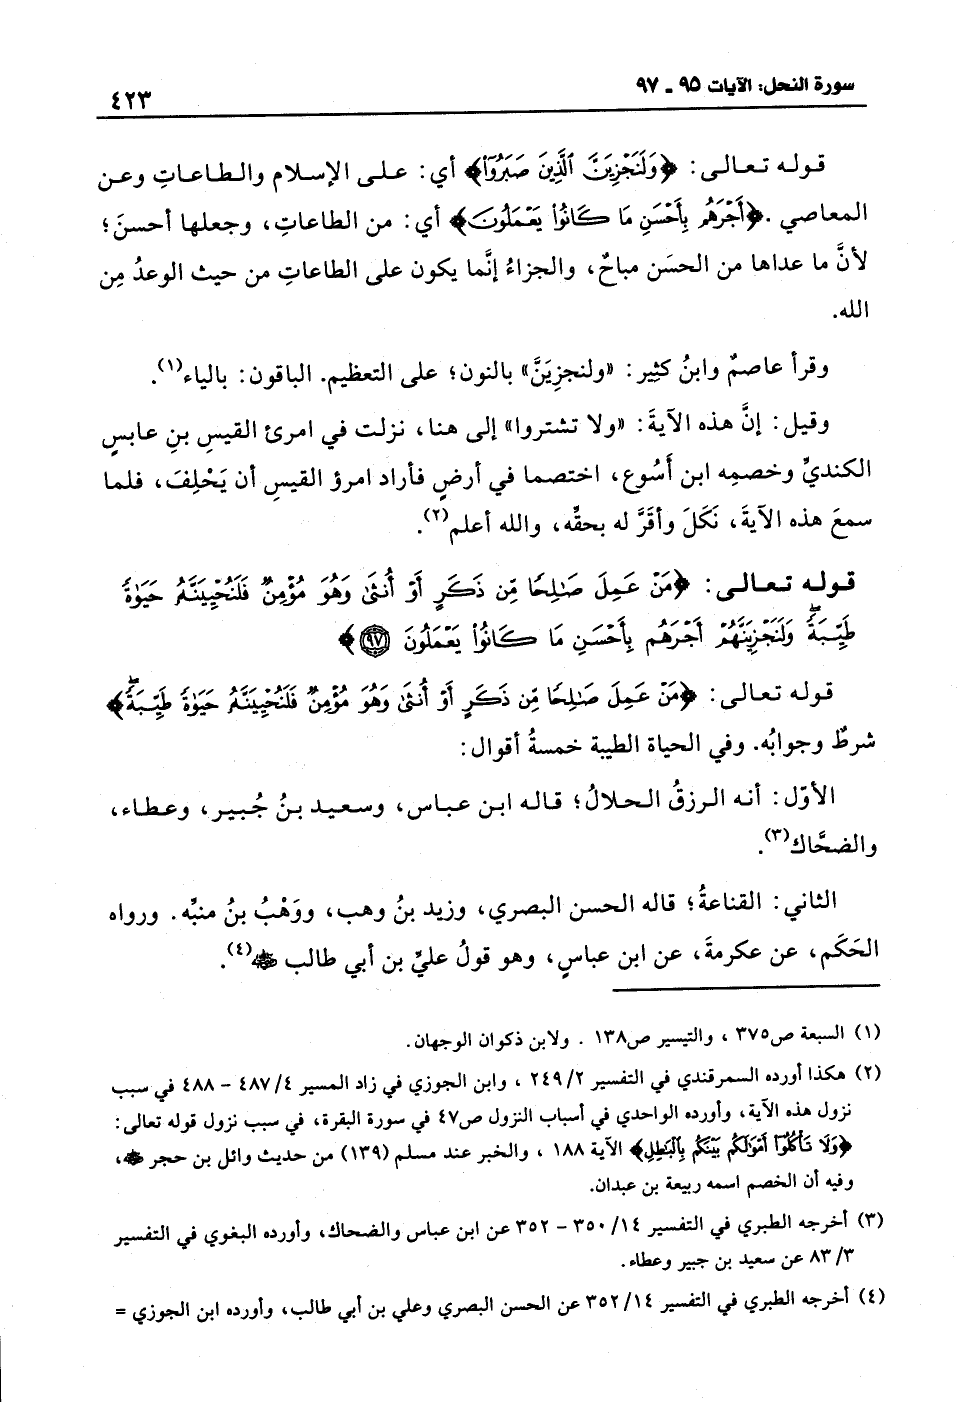 سورة النحل: الآيات ٩٥ - ٩٧
٤٢٣
قوله تعالى: ﴿وَلَنَجْزِيَنَّ ٱلَّذِينَ صَبَرُوٓا۟﴾ أي: على الإسلام والطاعاتِ وعن
المعاصي. ﴿أَجْرَهُم بِأَحْسَنِ مَا كَانُوا۟ يَعْمَلُونَ﴾ أي: من الطاعاتِ، وجعلها أحسنَ؛
لأنَّ ما عداها من الحسَن مباحٌ، والجزاءُ إنَّما يكون على الطاعاتِ من حيث الوعدُ مِن
الله.
وقرأ عاصمٌ وابنُ كثِير: «ولنجزِيَنَّ» بالنون؛ على التعظيم. الباقون: بالياء(١).
وقيل: إنَّ هذه الآيةَ: «ولا تشتروا» إلى هنا، نزلت في امرئ القيسِ بنِ عابسٍ
الكنديِّ وخصمِه ابن أَسْوع، اختصما في أرضٍ فأراد امرؤ القيسِ أن يَحْلِفَ، فلما
سمعَ هذه الآيةَ، نَكَلَ وأقَرَّ له بحقِّه، والله أعلم(٢).
قوله تعالى: ﴿مَنْ عَمِلَ صَٰلِحًا مِّن ذَكَرٍ أَوْ أُنثَىٰ وَهُوَ مُؤْمِنٌ فَلَنُحْيِيَنَّهُۥ حَيَوٰةً
طَيِّبَةً ۖ وَلَنَجْزِيَنَّهُمْ أَجْرَهُم بِأَحْسَنِ مَا كَانُوا۟ يَعْمَلُونَ ٩٧﴾
قوله تعالى: ﴿مَنْ عَمِلَ صَٰلِحًا مِّن ذَكَرٍ أَوْ أُنثَىٰ وَهُوَ مُؤْمِنٌ فَلَنُحْيِيَنَّهُۥ حَيَوٰةً طَيِّبَةً ۖ﴾
شرطٌ وجوابُه. وفي الحياة الطيبة خمسةُ أقوال:
الأوّل: أنه الرزقُ الحلالُ؛ قاله ابن عباس، وسعيد بنُ جُبير، وعطاء،
والضحَّاك(٣).
الثاني: القناعةُ؛ قاله الحسن البصري، وزيد بنُ وهب، ووَهْبُ بنُ منبِّه. ورواه
الحَكَم، عن عكرمةَ، عن ابن عباسٍ، وهو قولُ عليِّ بن أبي طالب ﷺ(٤).
(١) السبعة ص٣٧٥ ، والتيسير ص١٣٨ . ولابن ذكوان الوجهان.
(٢) هكذا أورده السمرقندي في التفسير ٢٤٩/٢ ، وابن الجوزي في زاد المسير ٤٨٧/٤ - ٤٨٨ في سبب
نزول هذه الآية، وأورده الواحدي في أسباب النزول ص٤٧ في سورة البقرة، في سبب نزول قوله تعالى:
﴿وَلَا تَأْكُلُوٓا۟ أَمْوَٰلَكُم بَيْنَكُم بِٱلْبَٰطِلِ﴾ الآية ١٨٨ ، والخبر عند مسلم (١٣٩) من حديث وائل بن حجر ﷺ،
وفيه أن الخصم اسمه ربيعة بن عبدان.
(٣) أخرجه الطبري في التفسير ٣٥٠/١٤ - ٣٥٢ عن ابن عباس والضحاك، وأورده البغوي في التفسير
٨٣/٣ عن سعيد بن جبير وعطاء.
(٤) أخرجه الطبري في التفسير ٣٥٢/١٤ عن الحسن البصري وعلي بن أبي طالب، وأورده ابن الجوزي =